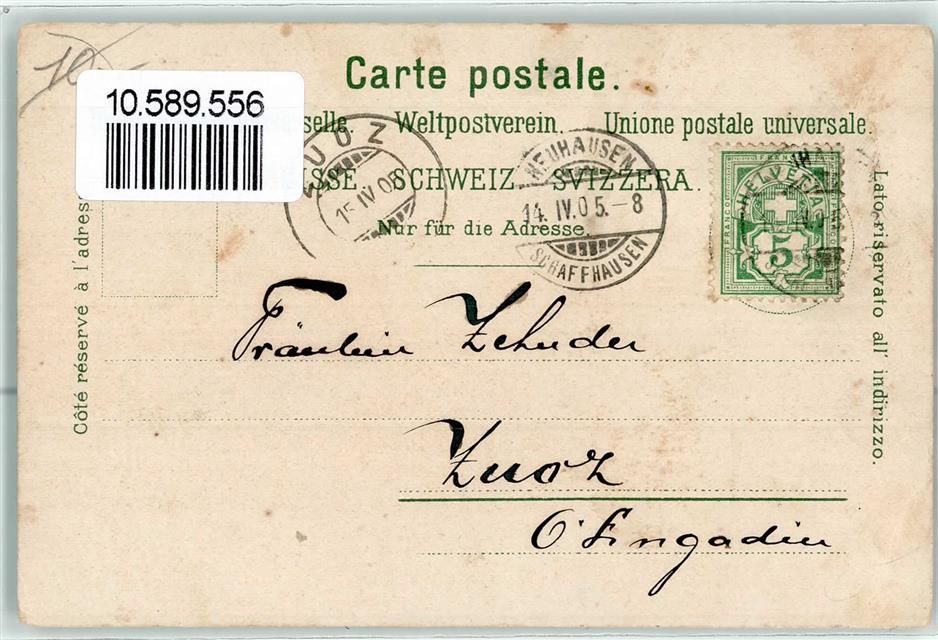 10
10.589.556
Carte postale.
selle. Weltpostverein. Unione postale universale.
ISSE SCHWEIZ SVIZZERA.
Nur für die Adresse.
ZUOZ
15 IV 05
NEUHAUSEN
14. IV. 05.-8
SCHAFFHAUSEN
FRANCO
HELVETIA
5
Côté réservé à l'adresse
Lato riservato all' indirizzo.
Fräulein Zehnder
Zuoz
O'Engadin